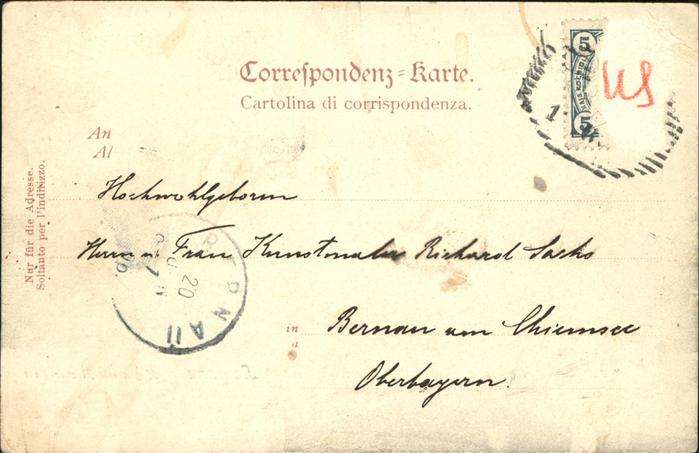 Correspondenz-Karte.
Cartolina di corrispondenza.
An
Al
Hochwohlgeboren
Herrn u. Frau Kunstmaler Richard Sachs
in
Bernau am Chiemsee
Oberbayern.
Nur für die Adresse.
Soltanto per l'indirizzo.
5
5
BERNAU
20